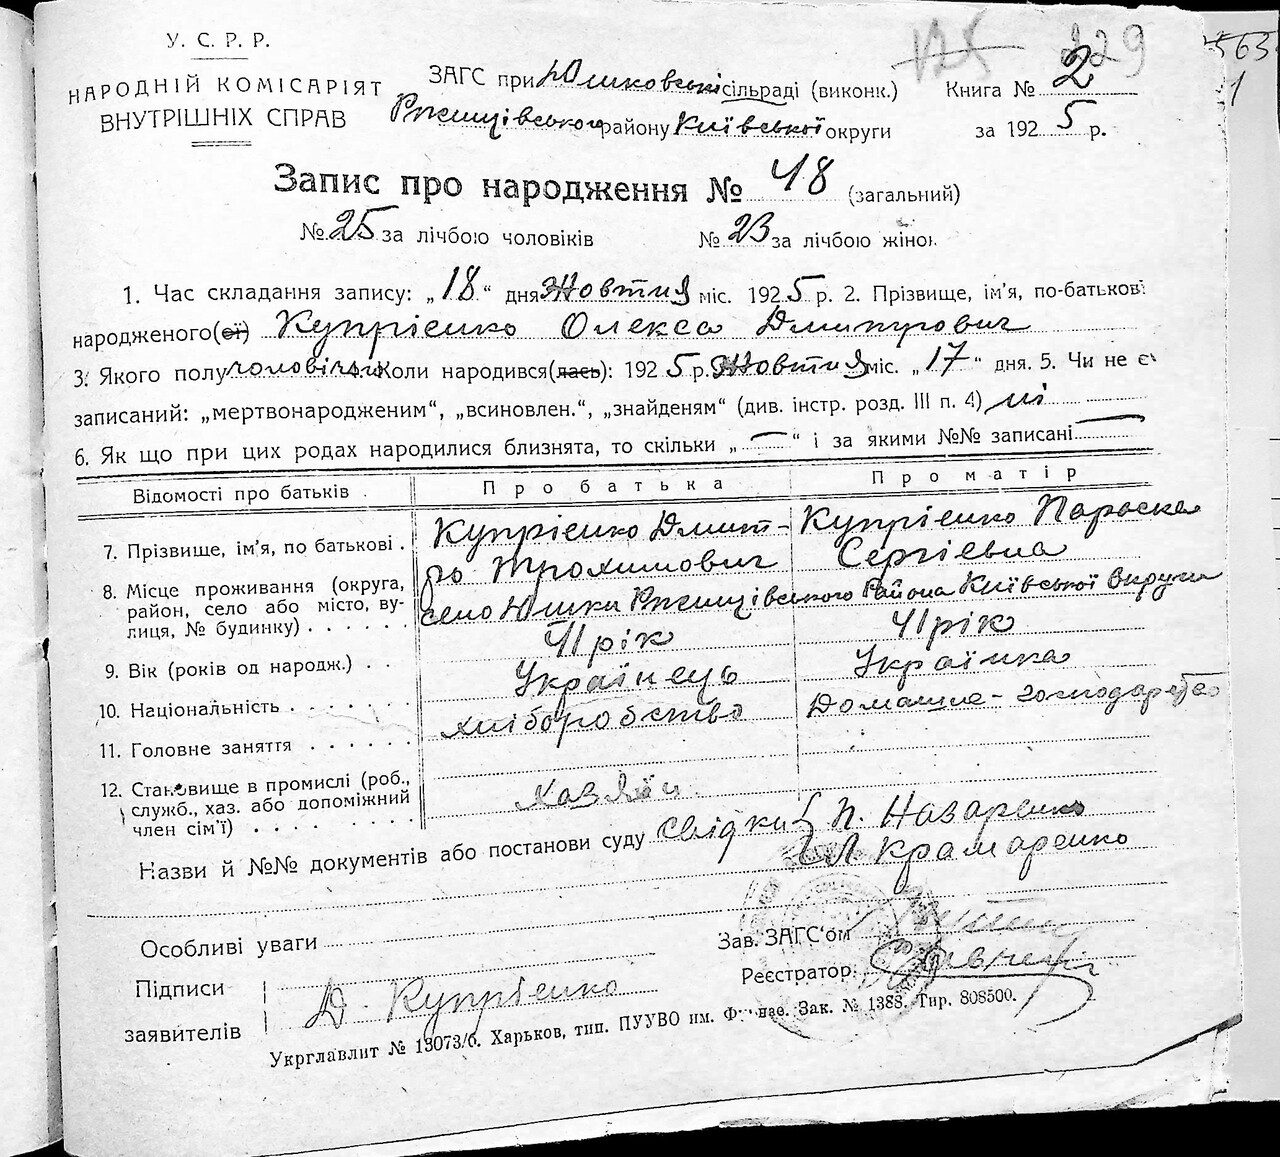 У. С. Р. Р.
НАРОДНІЙ КОМІСАРІЯТ
ВНУТРІШНІХ СПРАВ
125 229
563
1
ЗАГС при Юшковській сільраді (виконк.) Книга № 2
Ржищівського району Київської округи за 1925 р.
Запис про народження № 48 (загальний)
№ 25 за лічбою чоловіків № 23 за лічбою жінок
1. Час складання запису: „18“ дня Жовтня міс. 1925 р. 2. Прізвище, ім’я, по-батькові
народженого(ої) Купрієнко Олекса Дмитрович
3. Якого полу чоловічого Коли народився(лась): 1925 р. Жовтня міс. „17“ дня. 5. Чи не є
записаний: „мертвонародженим“, „всиновлен.“, „знайденям“ (див. інстр. розд. III п. 4) ні
6. Як що при цих родах народилися близнята, то скільки „—“ і за якими №№ записані —
Відомості про батьків. Про батька Про матір
7. Прізвище, ім’я, по батькові . Купрієнко Дмит- Купрієнко Параска
ро Трохимович Сергієвна
8. Місце проживання (округа,
район, село або місто, ву-
лиця, № будинку) . . . . . . село Юшки Ржищівського Района Київської Округи
9. Вік (років од народж.) . . 41 рік 41 рік
10. Національність . . . . . . . Українець Українка
11. Головне заняття . . . . . . хліборобство Домашнє-господарство
12. Становище в промислі (роб.,
служб., хаз. або допоміжний
член сім’ї) . . . . . . . . . хазяїн
Назви й №№ документів або постанови суду свідки { П. Назаренко
Л Крамаренко
Особливі уваги
Зав. ЗАГС‘ом
Реєстратор:
Підписи
заявителів Д. Купрієнко
Укрглавлит № 13073/б. Харьков, тип. ПУУВО им. Фрунзе. Зак. № 1388. Тир. 808500.